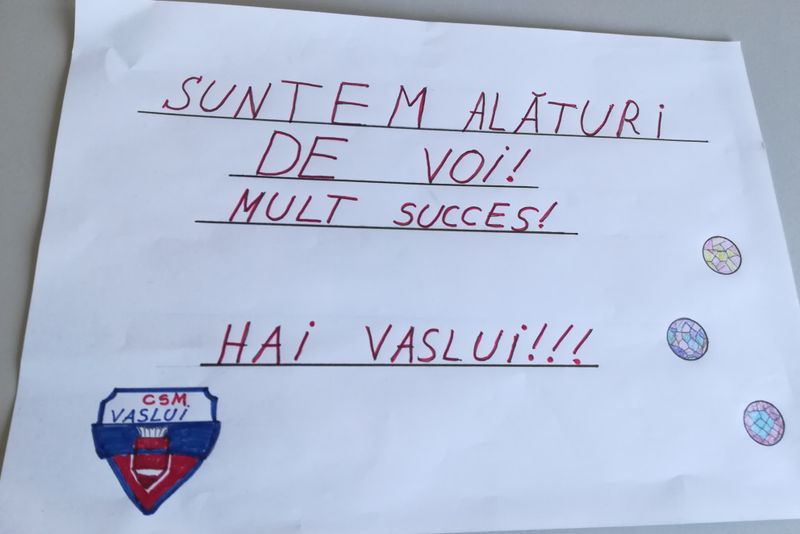 SUNTEM ALĂTURi
DE VOi!
MULT SUCCES!
HAi VASLUi!!!
CSM
VASLUi